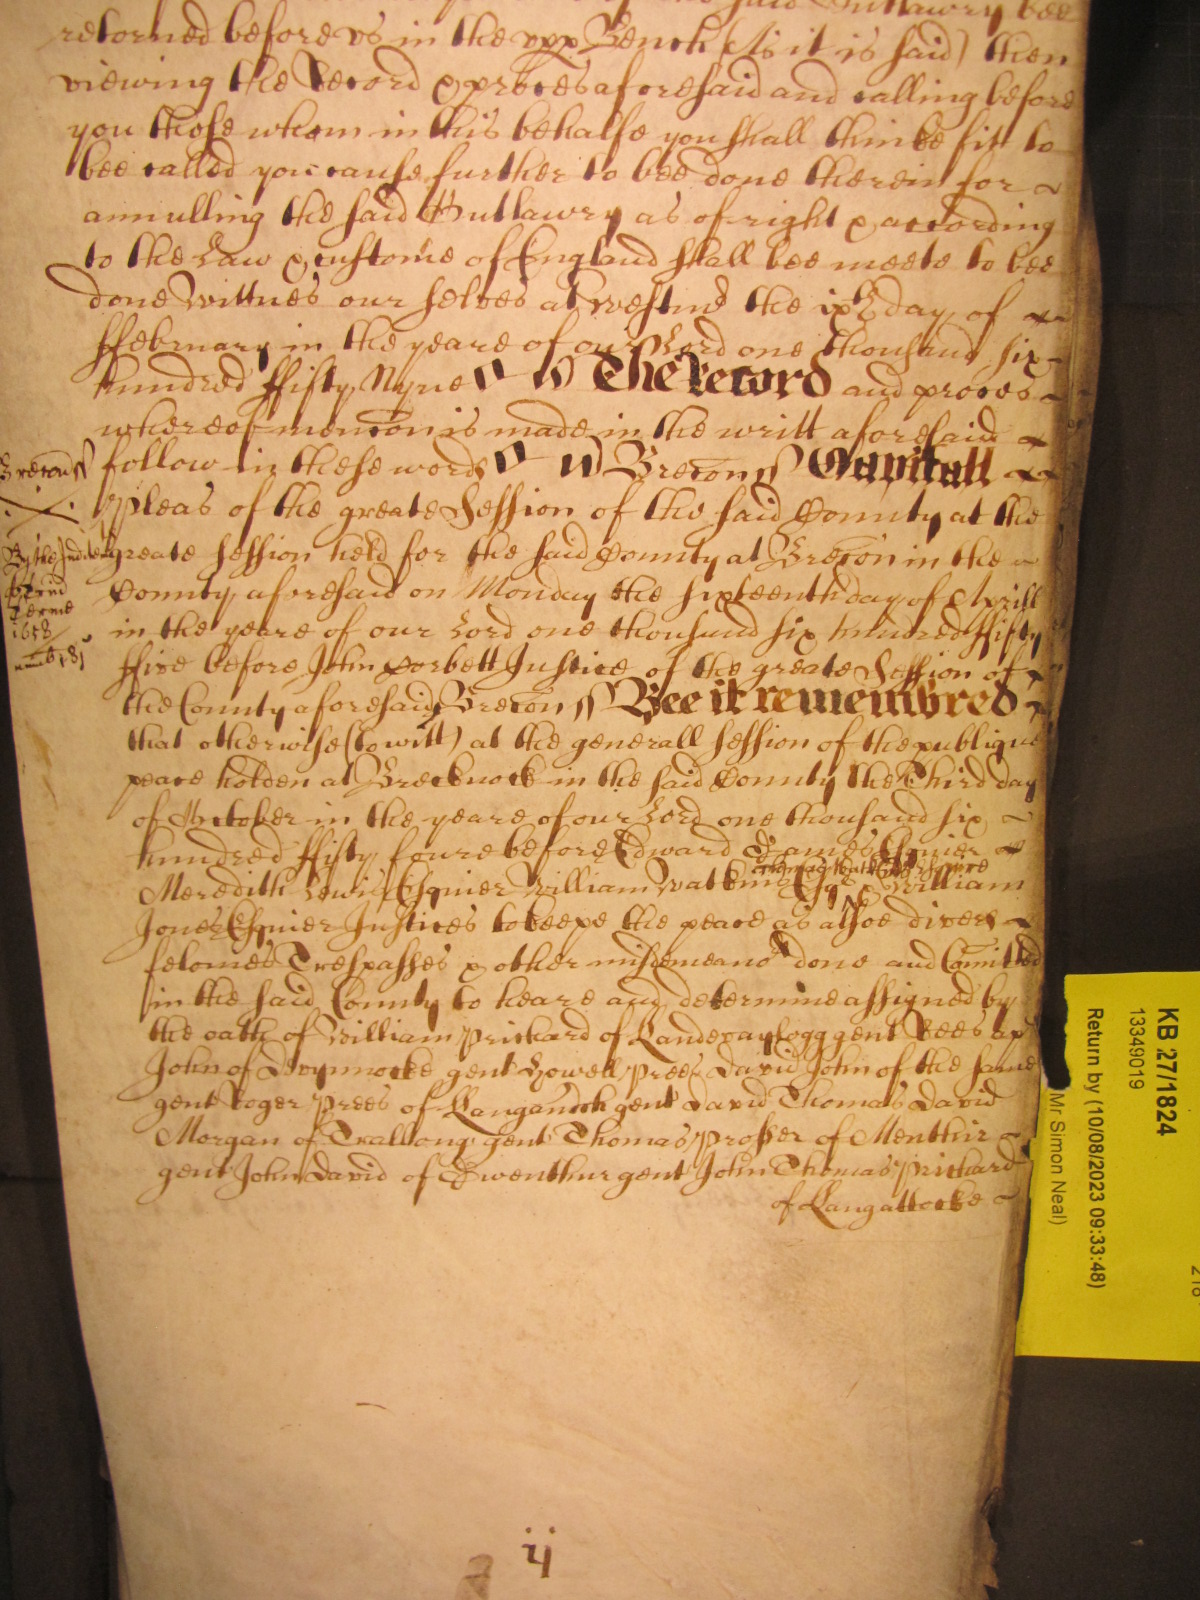 said Outlawry bee
retorned before us in the upp Bench (As it is said) then
viewing the Record & proces aforesaid and calling before
you those whom in this behalfe you shall thinke fit to
bee called you cause further to bee done therein for
annulling the said Outlawry as of right & according
to the Law & custome of England shall bee meete to bee
done Wittnes our selves at Westmr the ixth day of
ffebruary in the yeare of our Lord one thousand six
hundred ffifty Nyne The Record and proces
whereof mencon is made in the writt aforesaid
follow in these words Brecon ss Capitall
Pleas of the greate Session of the said County at the
greate Session held for the said County at Brecon in the
County aforesaid on Monday the sixteenth day of Aprill
in the yeare of our Lord one thousand six hundred ffifty
ffive before John Corbett Justice of the greate Session of
the County aforesaid Brecon ss Bee it remembred
that otherwise (to witt) at the generall Session of the publique
peace holden at Brecknock in the said County the Third day
of October in the yeare of our Lord one thousand six
hundred ffifty foure before Edward James Esquier
Meredith Lewis Esquier William Watkins Esqr & William
Jones Esquier Justices to keepe the peace as alsoe divers
felonies Trespasses & other misdemeanors done and Comitted
in the said County to heare and determine assigned by
the oath of William Prichard of Landevaylogg gent Rees ap
John of Devynnocke gent Howell Prees David John of the same
gent Roger Prees of Langanoth gent David Thomas David
Morgan of Trallong gent Thomas Prosser of Menthir
gent John David of Gwenthur gent John Thomas Prichard
of Langattocke
Brecon ss
By the
Terme
1658
ij
KB 27/1824
13349019
Return by (10/08/2023 09:33:48)
Mr Simon Neal)